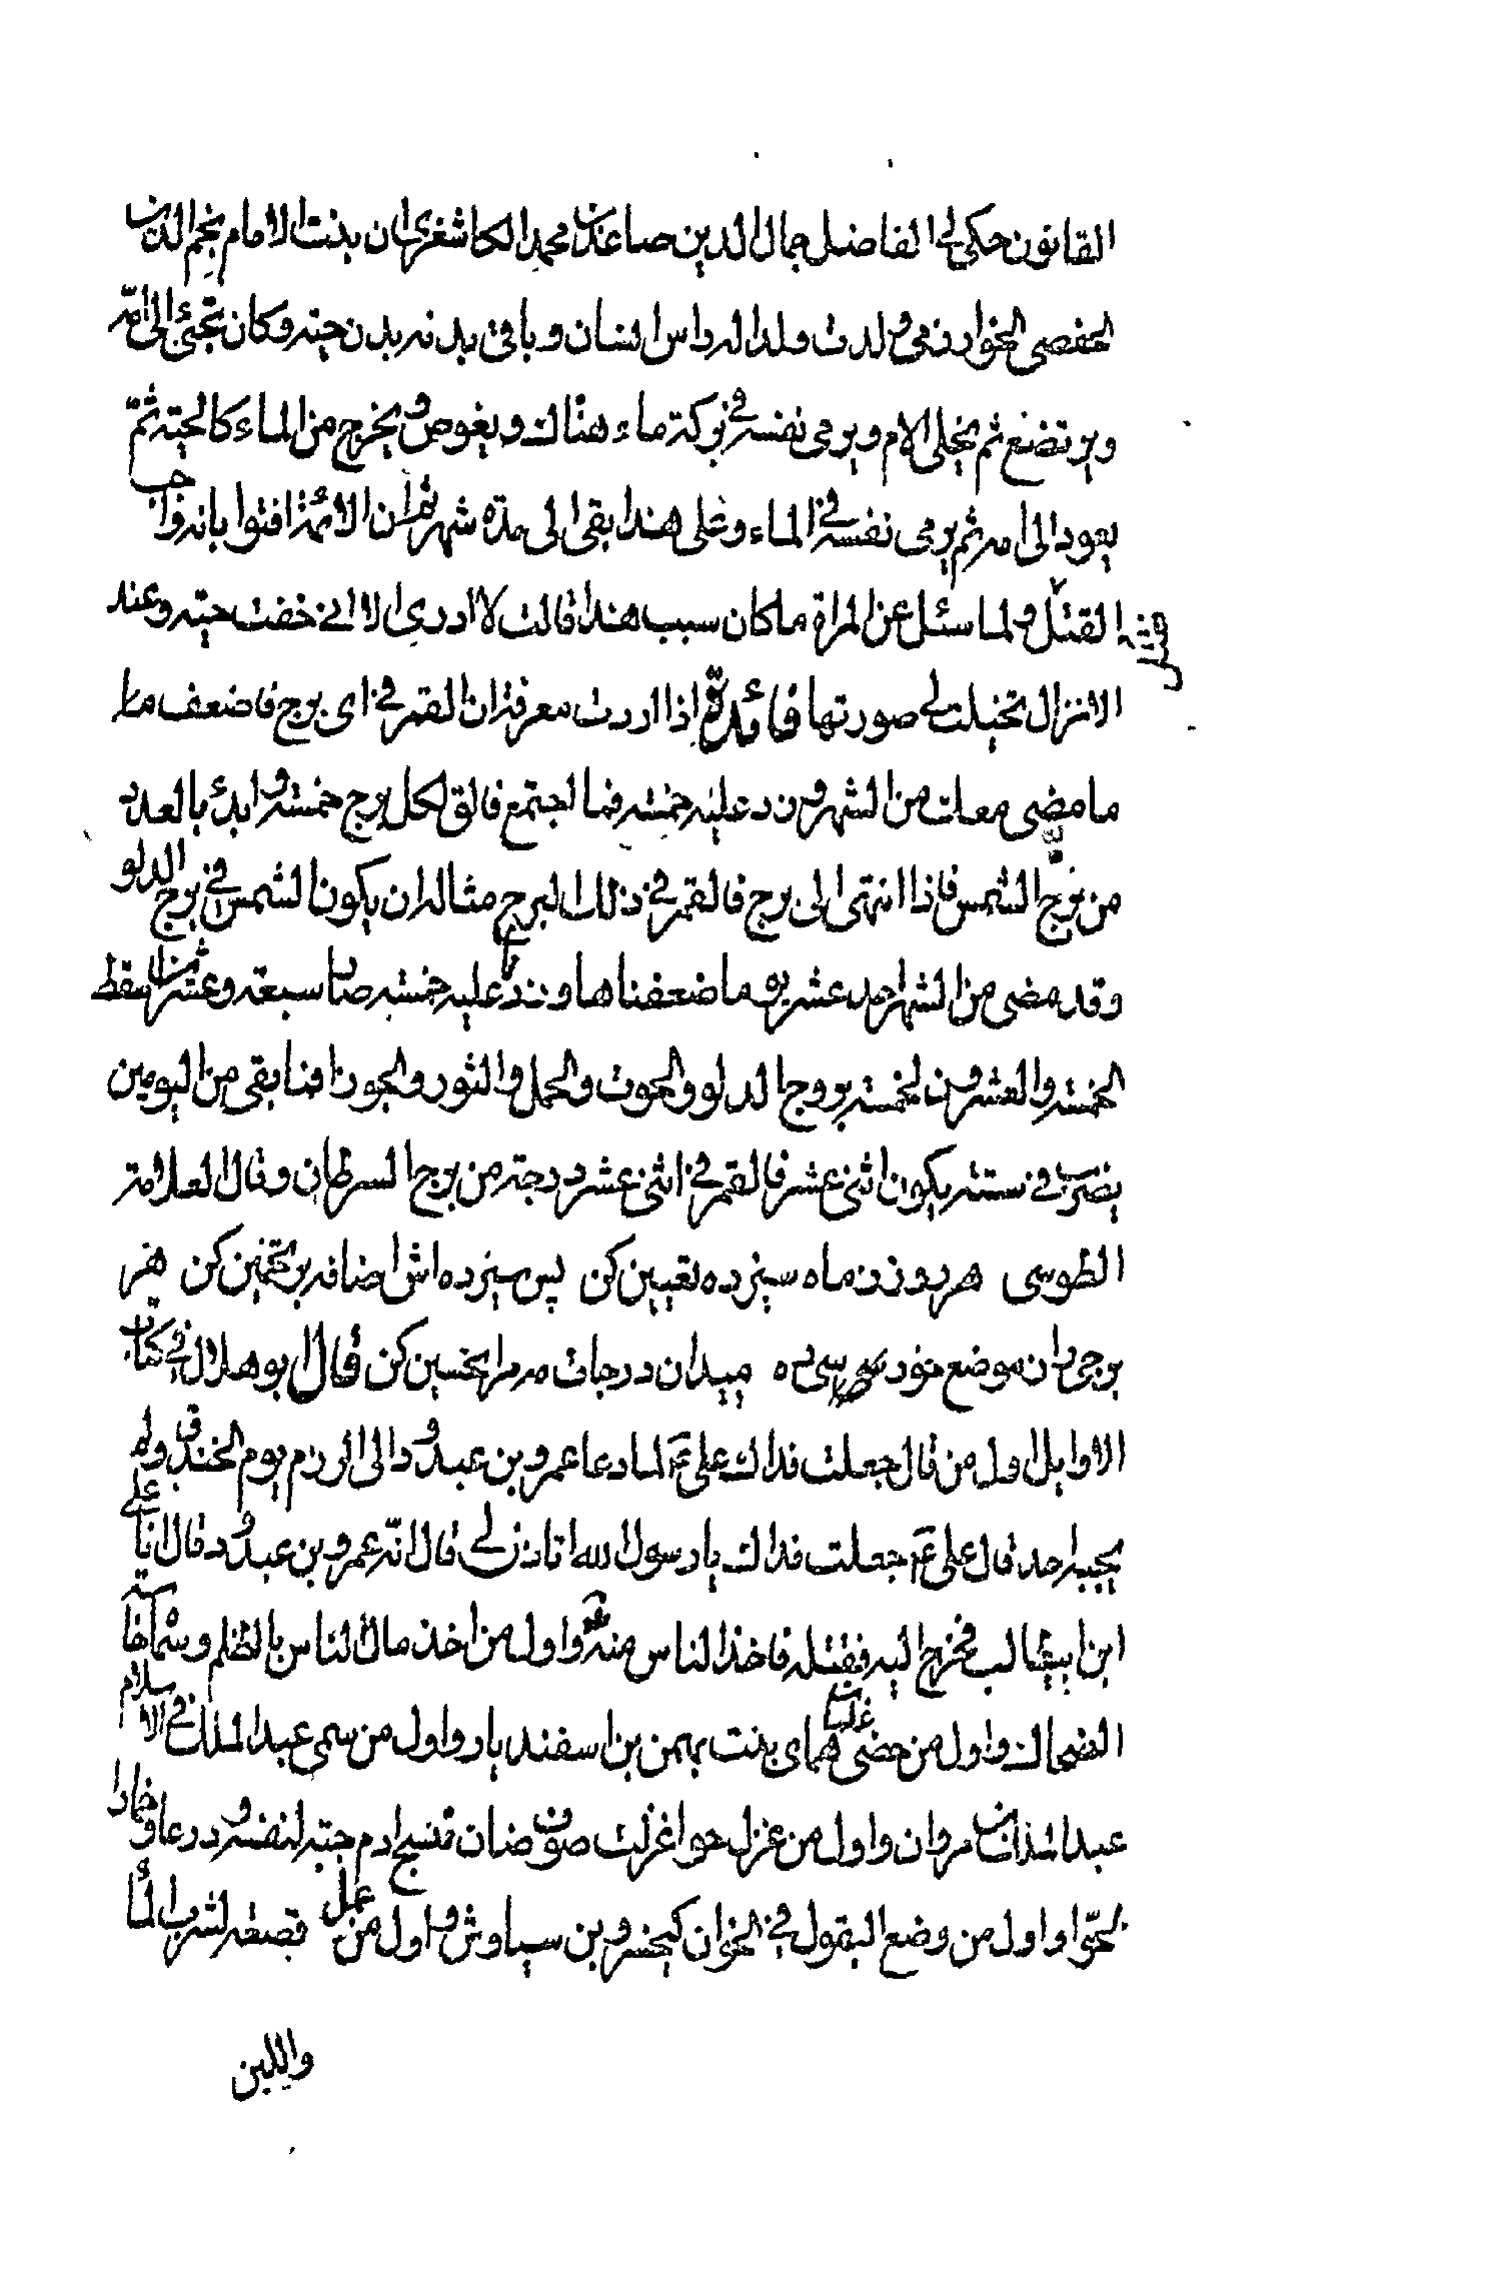 القانون حكى لى الفاضل جمال الدين صاعد بن محمد الكاشغرى ان بنت الامام نجم الدين
الحفصى الخوارزمى ولدت ولدا له راس انسان وباقى بدنه بدن حية وكان يجئ الى امه
ويرتضع ثم يخلى الام ويرمى نفسه فى بركة ماء هناك ويغوص ويخرج من الماء كالحية ثم
يعود الى امه ثم يرمى نفسه فى الماء وعلى هذا بقى الى مدة شهر ثم ان الائمة افتوا بانه واجب
القتل ولما سئل عن المراة ما كان سبب هذا قالت لا ادرى الا انى خفت حية وعند
الانزال تخيلت لى صورتها فائدة اذا اردت معرفة ان القمر فى اى برج فاضعف ما
ما مضى معك من الشهر وزد عليه خمسة فما اجتمع فالق لكل برج خمسة وابدء بالعدد
من برج الشمس فاذا انتهى الى برج فالقمر فى ذلك البرج مثاله ان يكون الشمس فى برج الدلو
وقد مضى من الشهر احد عشر يوما ضعفناها وزدنا عليه خمسة صار سبعة وعشرين اسقط
الخمسة والعشرون لخمسة بروج الدلو والحوت والحمل والثور والجوزا فما بقى من اليومين
يضرب فى ستة يكون اثنى عشر فالقمر فى اثنى عشر درجة من برج السرطان وقال العلامة
الطوسى هر روز ز ماه سيزده تعيين كن پس سيزده اش اضافه بر تخمين كن هر
برجى را ز موضع خور سى سى ده ميدان درجات مه مرا تحسين كن قال ابو هلال فى كتاب
الاوايل اول من قال جعلت فداك على ع لما دعا عمرو بن عبد ود الى البراز م يوم الخندق ولم
يجبه احد قال على ع جعلت فداك يا رسول الله اتاذن لى قال انه عمرو بن عبد ود قال انا على
ابن ابيطالب فخرج اليه فقتله فاخذ الناس منه ع واول من اخذ مال الناس بالظلم
الضحاك واول من هماى بنت بهمن بن اسفنديار واول من سمى عبد الملك فى الاسلام
عبد الملك بن مروان واول من غزل حوا غزلت صوف ضان فنسج ادم جبة لنفسه ودرعا وخمارا
لحوا واول من وضع البقول فى الخوان كيخسرو بن سياوش واول من عمل قصعة لشرب الماء
واللبن